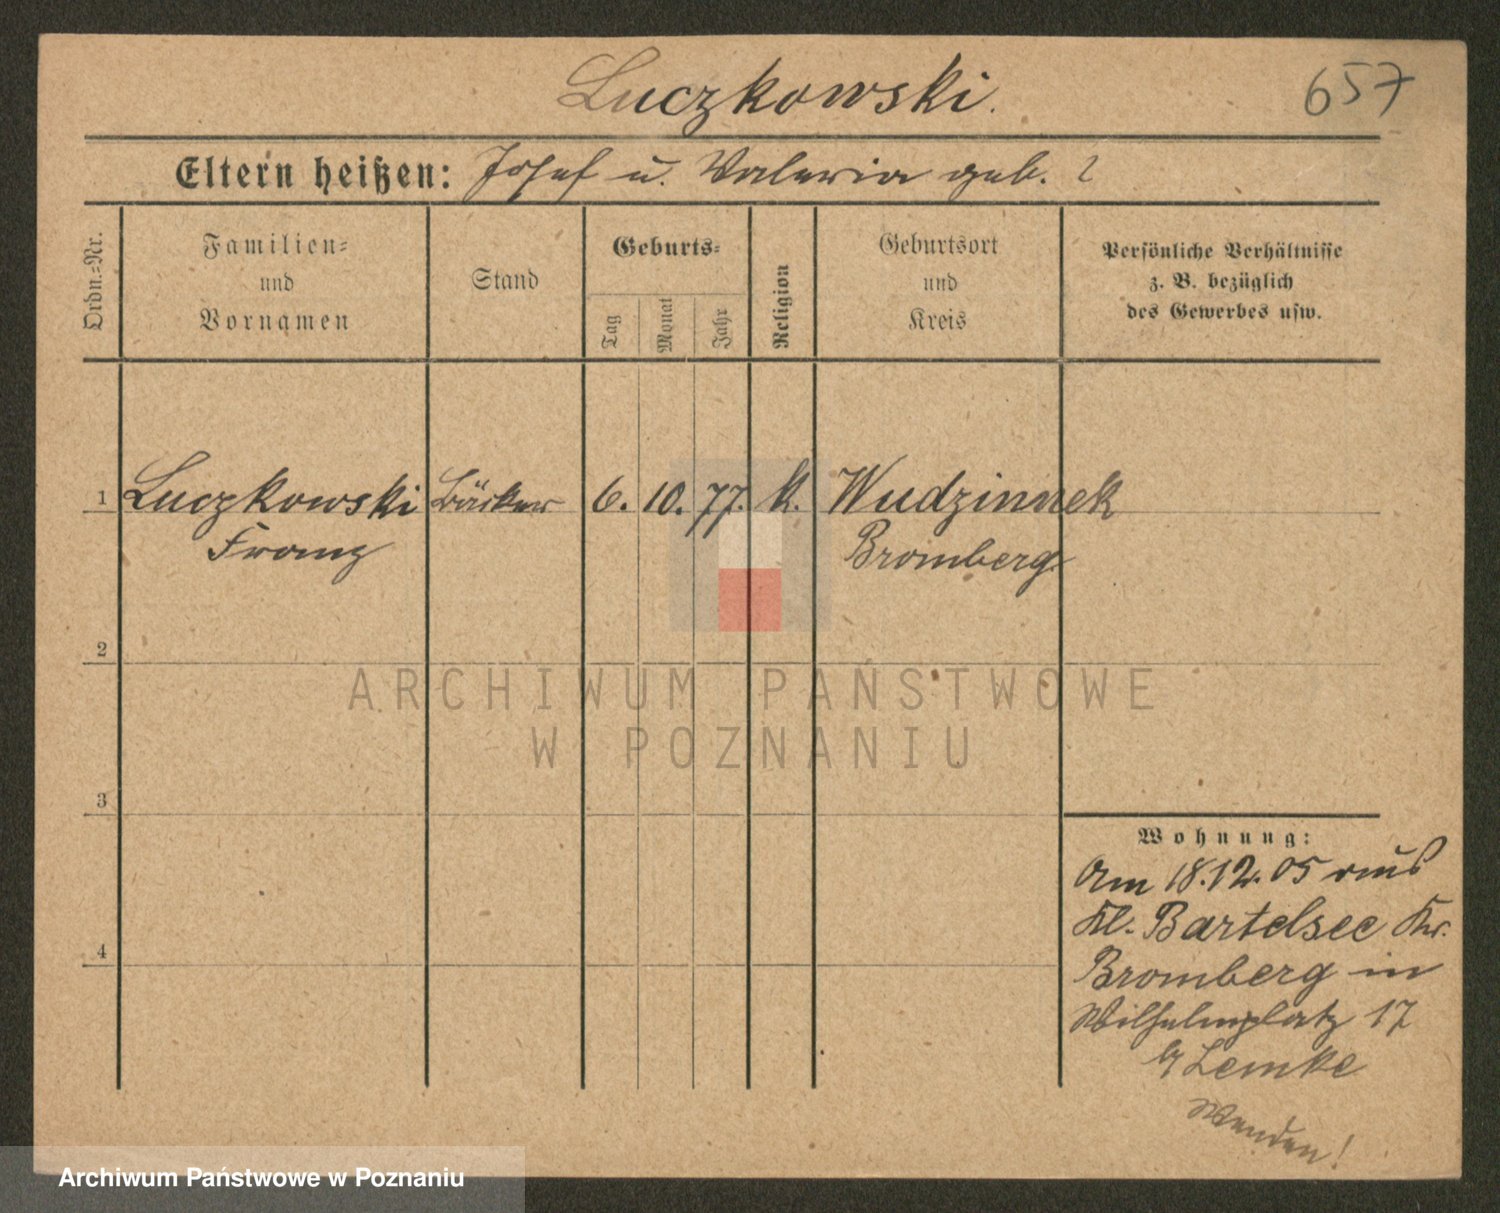 Luczkowski.
657
Eltern heißen: Josef u. Valeria geb. ?
Ordn.-Nr.
Familien-
und
Vornamen
Stand
Geburts-
Tag
Monat
Jahr
Religion
Geburtsort
und
Kreis
Persönliche Verhältnisse
z. B. bezüglich
des Gewerbes usw.
1 Luczkowski Bäcker 6. 10. 77. k. Wudzinnek
Franz Bromberg
2
3
4
Wohnung:
Am 18.12.05 aus
Kl. Bartelsee Kr.
Bromberg in
Wilhelmplatz 17
b/ Lemke
Wenden!
ARCHIWUM PAŃSTWOWE
W POZNANIU
Archiwum Państwowe w Poznaniu